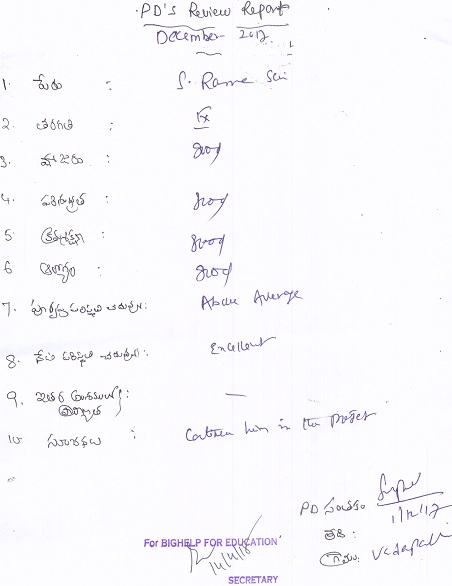 PD'S Review Report
December 2017
1. పేరు : S. Rama Sai
2. తరగతి : IX
3. హాజరు : good
4. పరిశుభ్రత : good
5. క్రమశిక్షణ : good
6. ఆరోగ్యం : good
7. పూర్వపు పరిస్థితి చదువులో : Above Average
8. నేటి పరిస్థితి చదువులో : Excellent
9. ఇతర : —
10 సూచనలు : Continue him in the project
PD సంతకం
1/12/17
తేది :
గ్రామం: Vadapalli
For BIGHELP FOR EDUCATION
14/4/18
SECRETARY